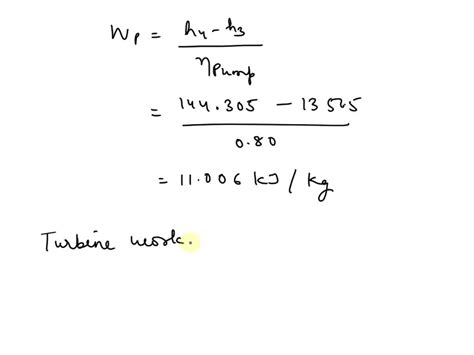 Wp = h4 - h3
ηPump
= 144.305 - 13505
0.80
= 11.006 kJ / kg
Turbine work.